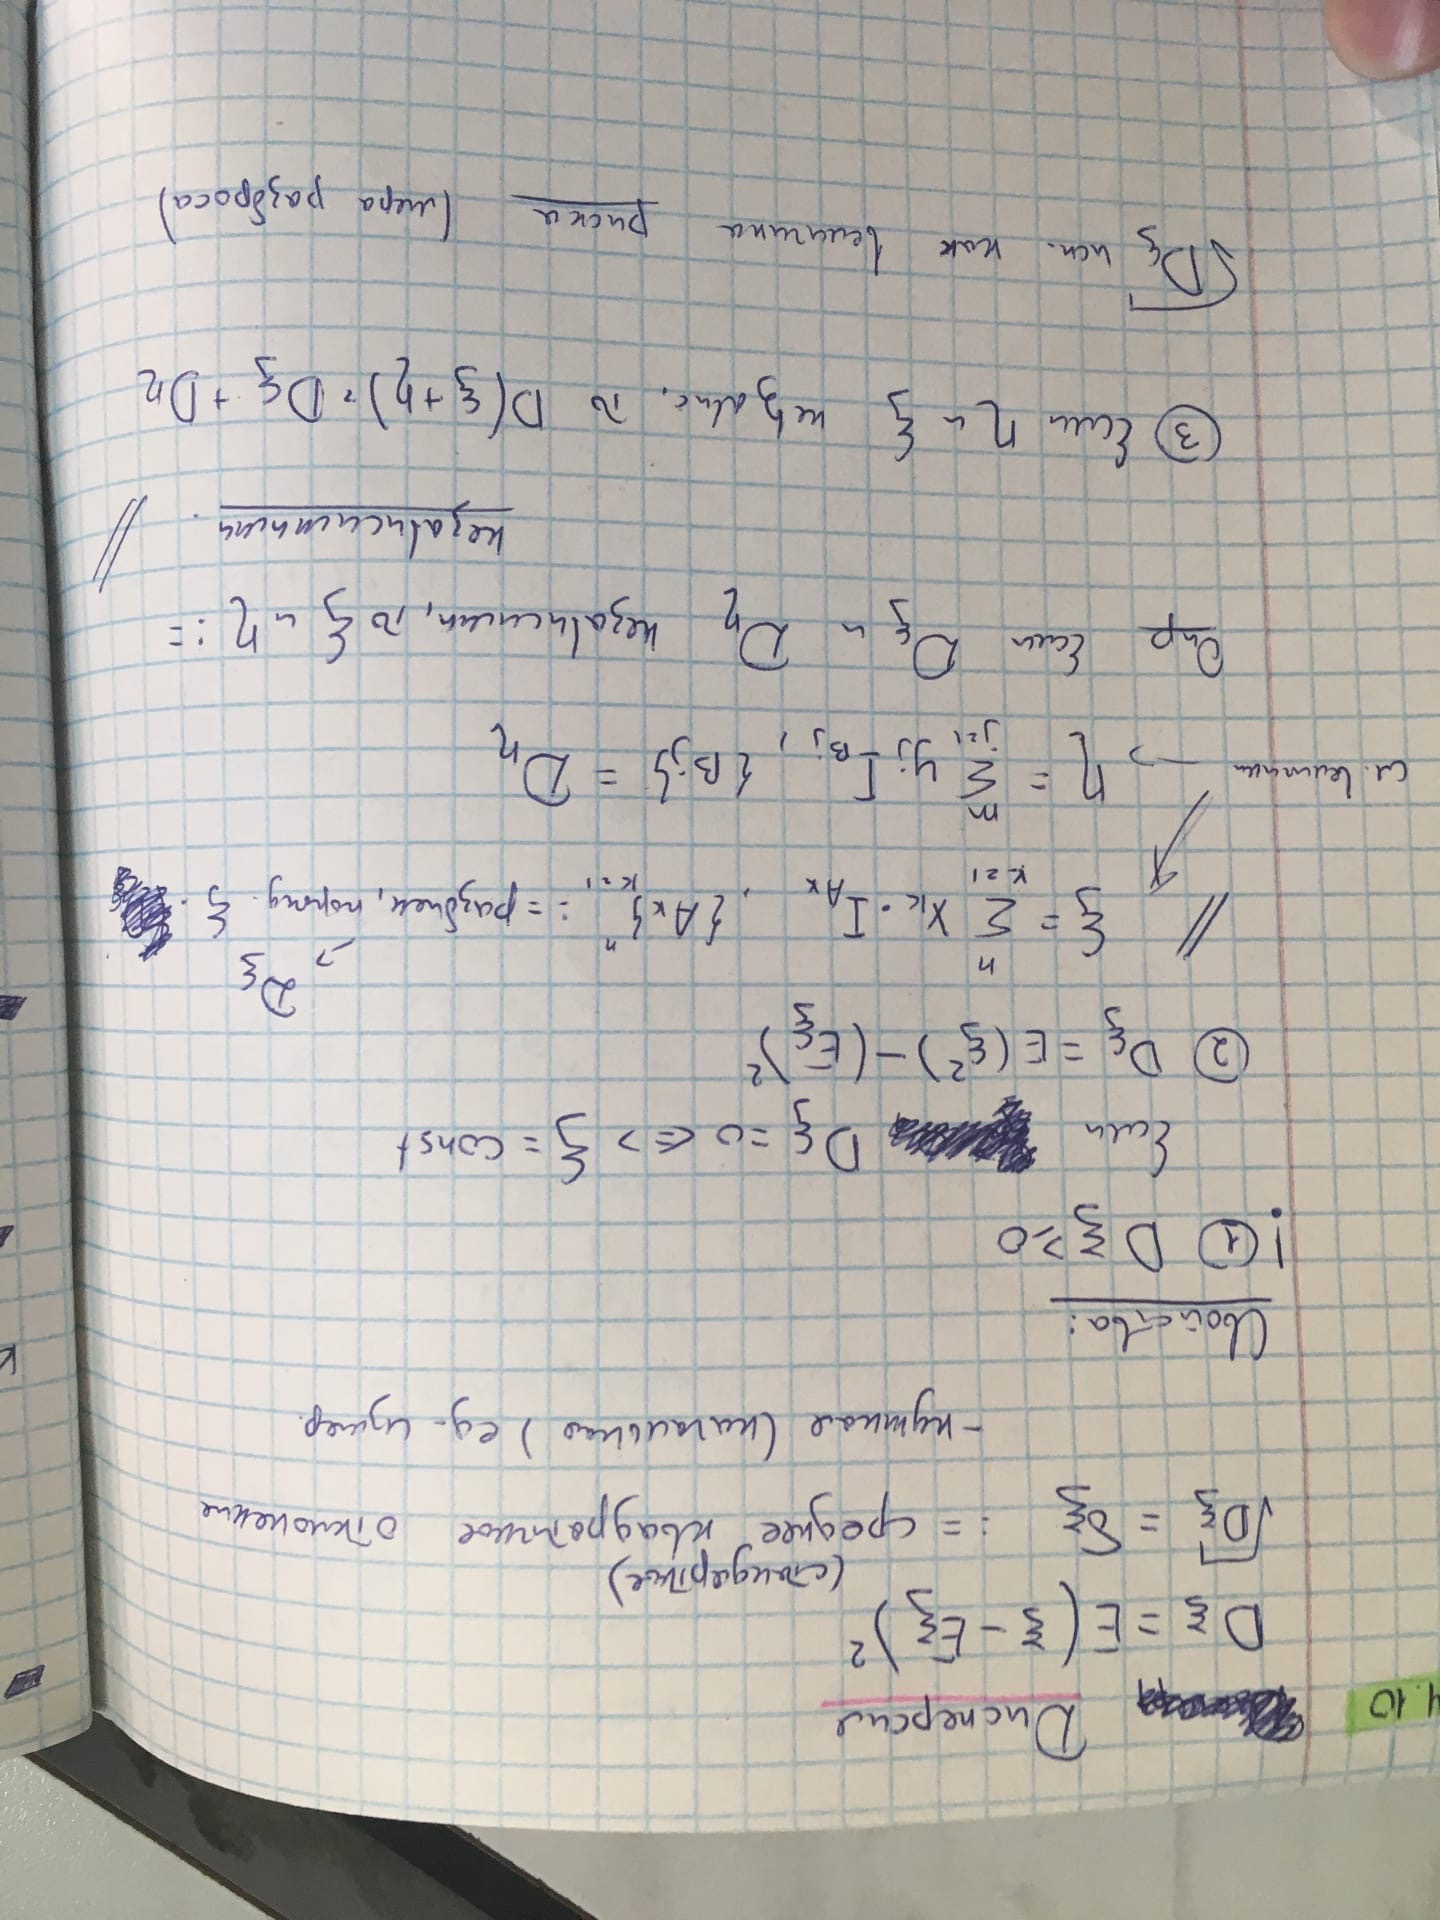 4.10 Дисперсия
Dξ = E(ξ - Eξ)²
(стандартное)
√Dξ = δξ := среднее квадратичное отклонение
- нужная (начальная) ед. измер.
Свойства:
! ① Dξ ≥ 0
Если Dξ = 0 <=> ξ = const
② Dξ = E(ξ²) - (Eξ)²
Dξ
// ξ = Σ_{k=1}^{n} X_k · I_{A_k}, {A_k}_{k=1}^{n} := разбиен, порожд. ξ.
сл. величины → η = Σ_{j=1}^{m} y_j I_{B_j}, {B_j} = D_η
Опр Если D_ξ и D_η независимы, то ξ и η :=
независимыми. //
③ Если η и ξ независ. то D(ξ+η) = Dξ + Dη
√Dξ исп. как величина риска (мера разброса)